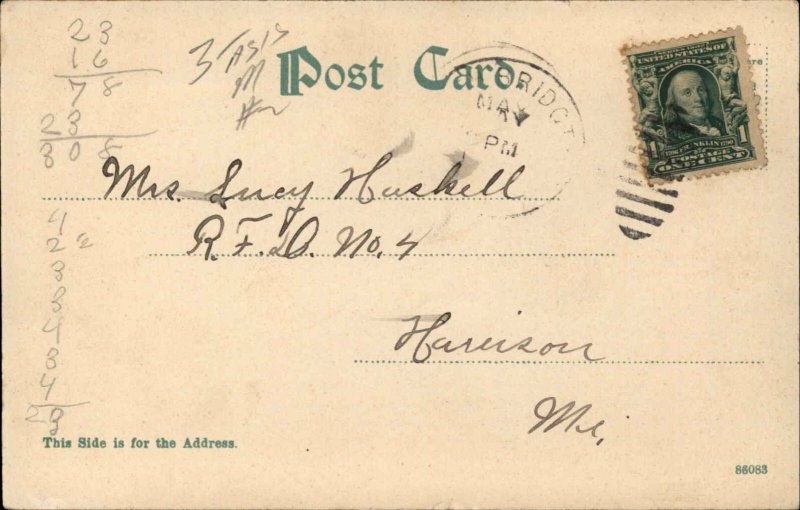 23
16
78
23
308
Post Card.
BRIDGT
MAY
PM
SERIES 1902
UNITED STATES OF
AMERICA
1
1
FRANKLIN
POSTAGE
ONE CENT
Mrs. Lucy Haskell
R.F.D. No. 4
Harrison
Me.
4
2
3
3
4
3
4
23
This Side is for the Address.
86083